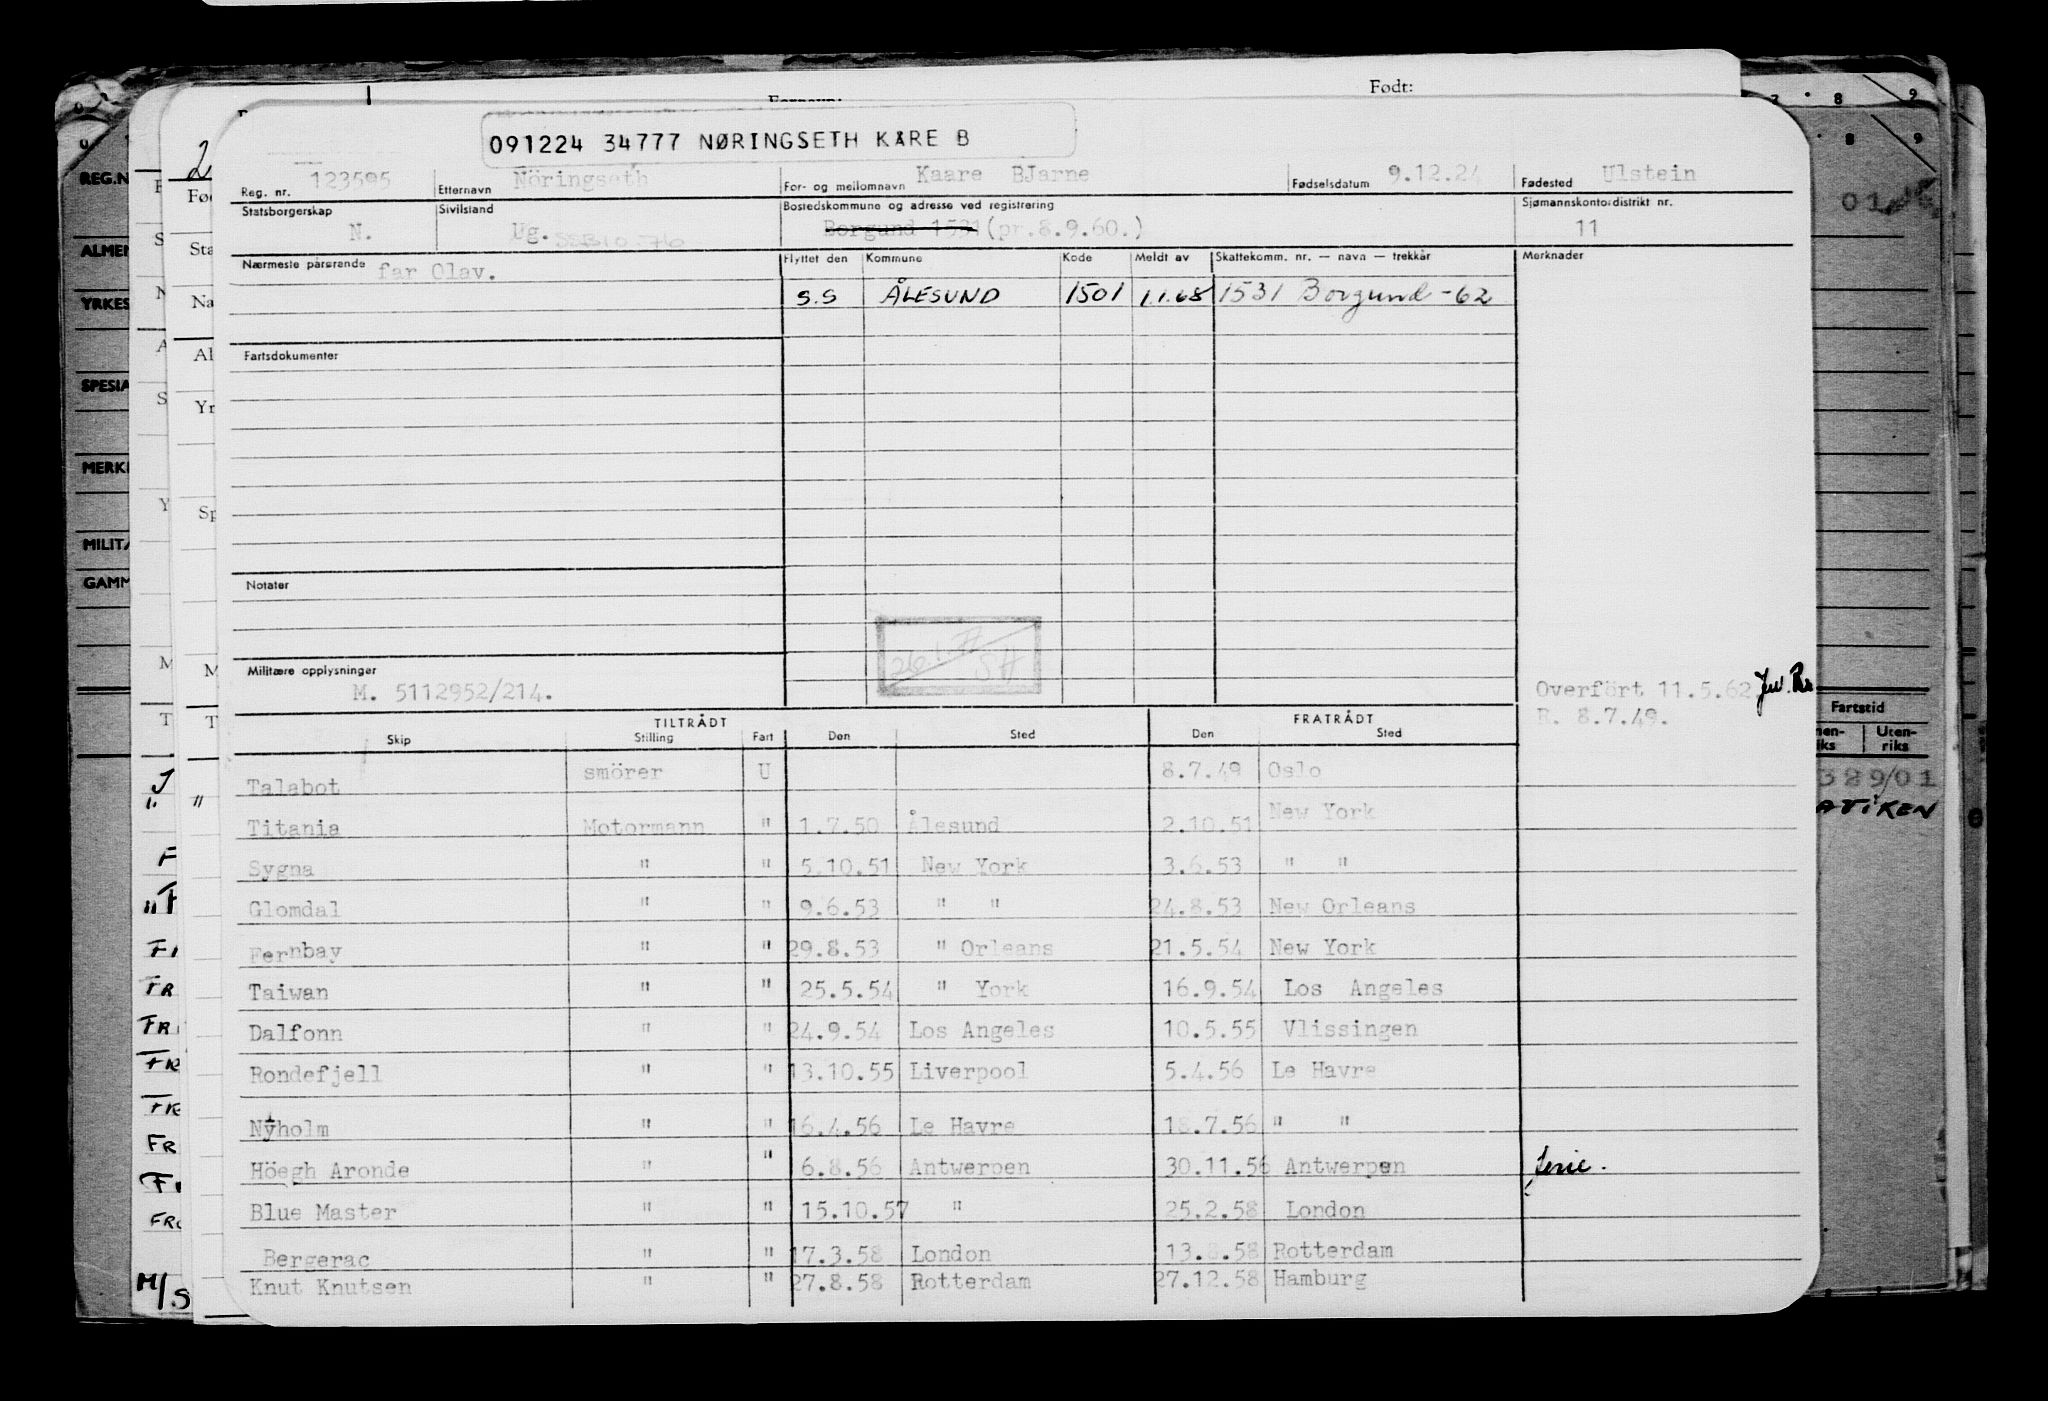 Født:
091224 34777 NØRINGSETH KÅRE B
Reg. nr. 123595 Etternavn Nöringseth For- og mellomnavn Kaare BJarne Fødselsdatum 9.12.24 Fødested Ulstein
Statsborgerskap N. Sivilstand Ug. Bostedskommune og adresse ved registrering Borgund 1531 (pr.8.9.60.) Sjømannskontordistrikt nr. 11
Nærmeste pårørende far Olav. Flyttet den Kommune Kode Meldt av Skattekomm. nr. — navn — trekkår Merknader
S.S ÅLESUND 1501 1.1.68 1531 Borgund -62
Fartsdokumenter
Notater
Militære opplysninger
M. 5112952/214.
Overfört 11.5.62
R. 8.7.49.
TILTRÅDT FRATRÅDT
Skip Stilling Fart Den Sted Den Sted
Talabot smörer U 8.7.49 Oslo
Titania Motormann " 1.7.50 Ålesund 2.10.51 New York
Sygna " " 5.10.51 New York 3.6.53 " "
Glomdal " " 9.6.53 " " 24.8.53 New Orleans
Fernbay " " 29.8.53 " Orleans 21.5.54 New York
Taiwan " " 25.5.54 " York 16.9.54 Los Angeles
Dalfonn " " 24.9.54 Los Angeles 10.5.55 Vlissingen
Rondefjell " " 13.10.55 Liverpool 5.4.56 Le Havre
Nyholm " " 16.4.56 Le Havre 18.7.56 " "
Höegh Aronde " " 6.8.56 Antwerpen 30.11.56 Antwerpen ferie.
Blue Master " " 15.10.57 " 25.2.58 London
Bergerac " " 17.3.58 London 13.8.58 Rotterdam
Knut Knutsen " " 27.8.58 Rotterdam 27.12.58 Hamburg
REG.N
ALMEN
YRKES
SPESIA
MERK
MILIT
GAMM
Fartstid
Uten-
riks
389/01